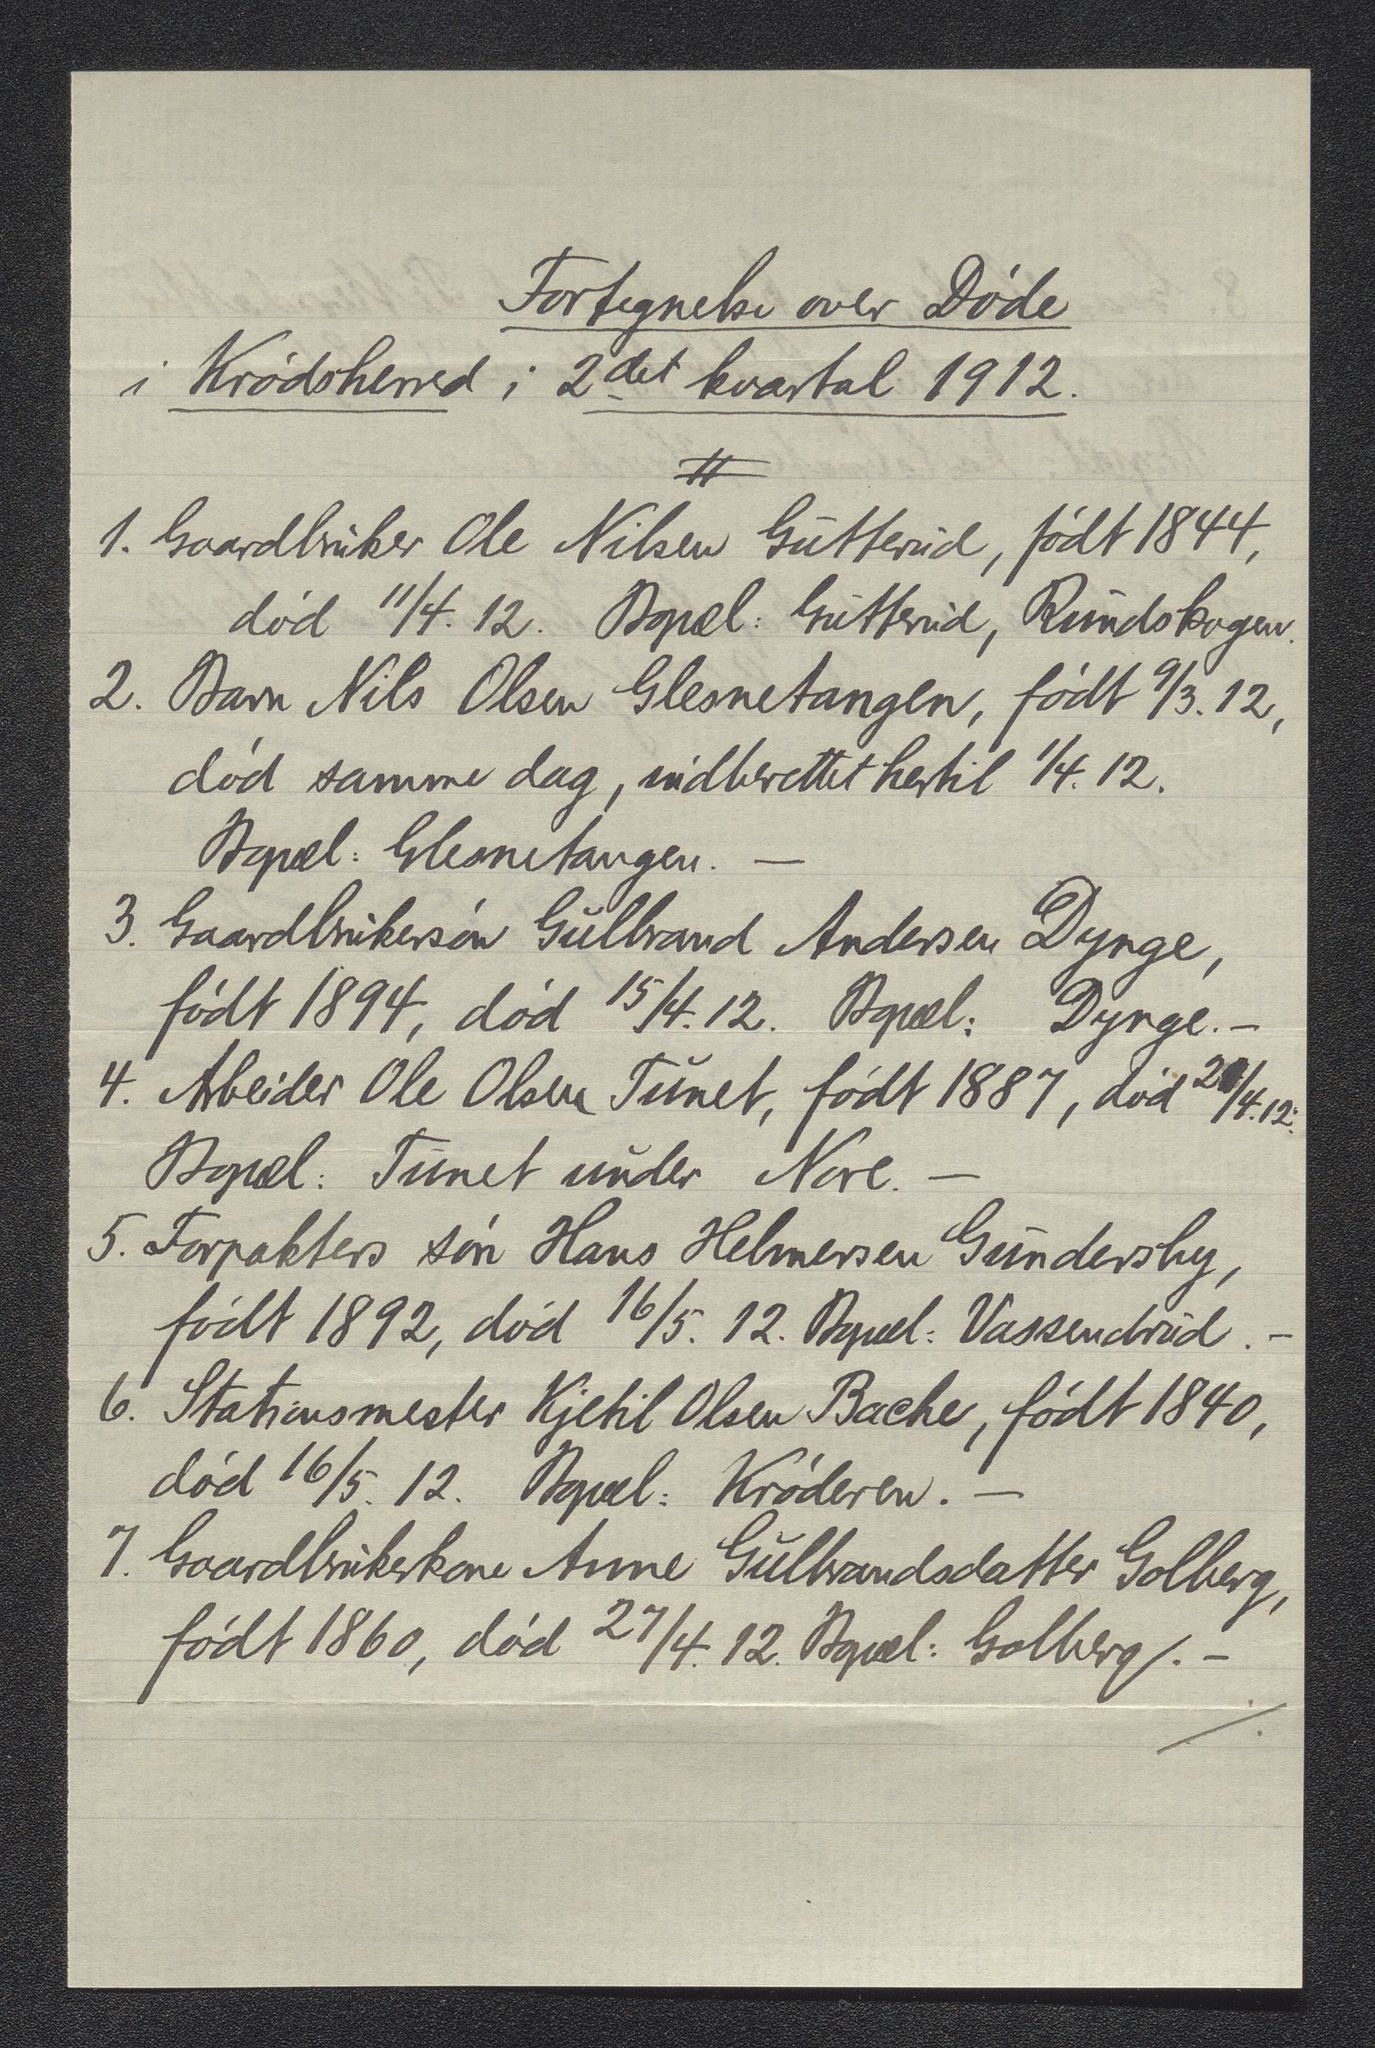 Fortegnelse over Døde
i Krødsherred i 2det kvartal 1912.
1. Gaardbruker Ole Nilsen Gutterud, født 1844,
død 11/4. 12. Bopæl: Gutterud, Rundskogen.
2. Barn Nils Olsen Glesnetangen, født 9/3. 12,
død samme dag, indberettet hertil 1/4. 12.
Bopæl: Glesnetangen. —
3. Gaardbrukersøn Gulbrand Andersen Dynge,
født 1894, død 15/4. 12. Bopæl: Dynge. —
4. Arbeider Ole Olsen Tunet, født 1887, død /4. 12.
Bopæl: Tunet under Nore. —
5. Forpakters søn Hans Helmersen Gundersby,
født 1892, død 16/5. 12. Bopæl: Vassendrud. —
6. Stationsmester Kjetil Olsen Bache, født 1840,
død 16/5. 12. Bopæl: Krøderen. —
7. Gaardbrukerkone Anne Gulbrandsdatter Golberg,
født 1860, død 27/4. 12. Bopæl: Golberg. —